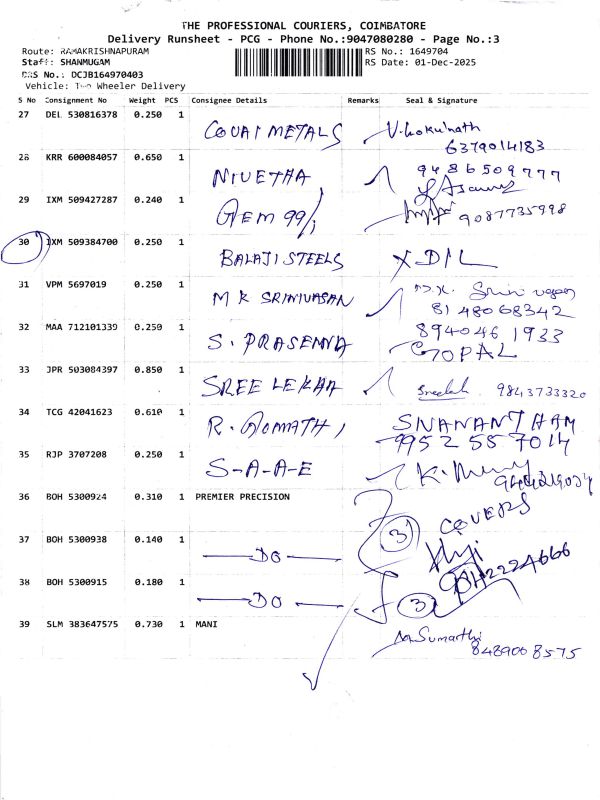 THE PROFESSIONAL COURIERS, COIMBATORE
Delivery Runsheet - PCG - Phone No.:9047080280 - Page No.:3
Route: RAMAKRISHNAPURAM RS No.: 1649704
Staff: SHANMUGAM RS Date: 01-Dec-2025
DRS No.: DCJB164970403
Vehicle: Two Wheeler Delivery
S No Consignment No Weight PCS Consignee Details Remarks Seal & Signature
27 DEL 530816378 0.250 1 COVAI METALS V. Gokulnath
6379014183
28 KRR 600084057 0.650 1 NIVETHA 9486509777
29 IXM 509427287 0.240 1 GEM 99/; 9087735998
30 IXM 509384700 0.250 1 BALAJI STEELS X DIL
31 VPM 5697019 0.250 1 M K SRINIVASAN
8148068342
32 MAA 712101339 0.250 1 S. PRASENNA 8940461933
GOPAL
33 JPR 503084397 0.850 1 SREE LEKHA Sreelek 9843733320
34 TCG 42041623 0.610 1 R. GOMATHI
9952557014
35 RJP 3707208 0.250 1 S-A-A-E
36 BOH 5300924 0.310 1 PREMIER PRECISION
3 COVERS
37 BOH 5300938 0.140 1 DO
38 BOH 5300915 0.180 1 DO 3
39 SLM 383647575 0.730 1 MANI M. Sumathi
8489008575